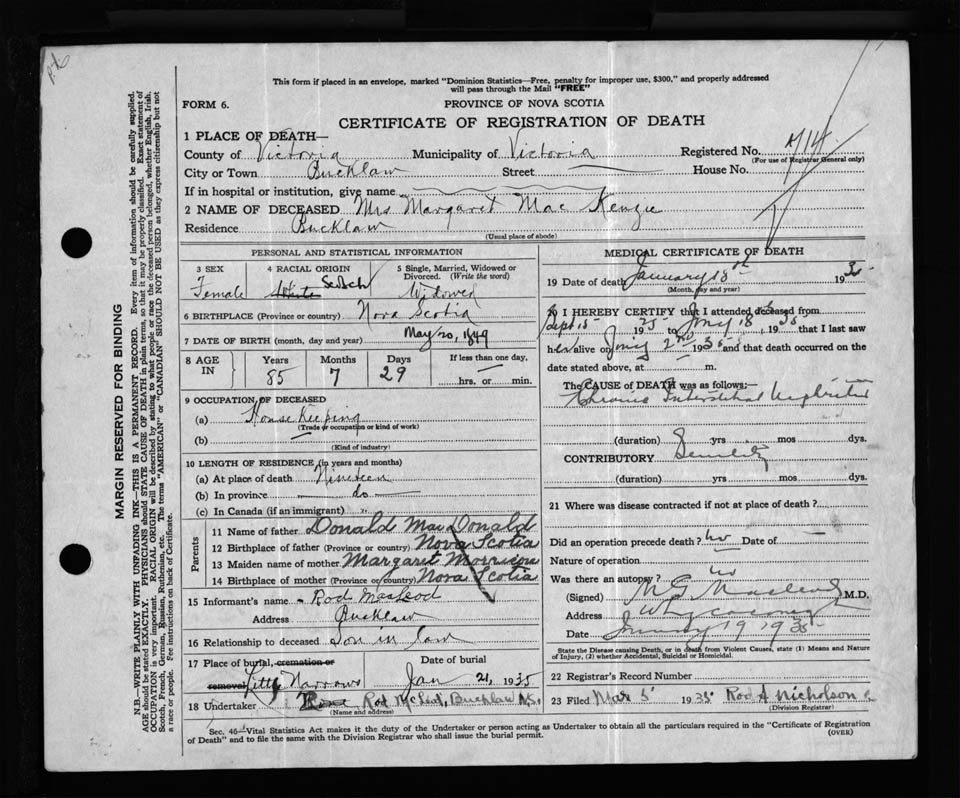 This form if placed in an envelope, marked "Dominion Statistics—Free, penalty for improper use, $300," and properly addressed
will pass through the Mail "FREE"
FORM 6.
PROVINCE OF NOVA SCOTIA
CERTIFICATE OF REGISTRATION OF DEATH
MARGIN RESERVED FOR BINDING
N.B.—WRITE PLAINLY WITH UNFADING INK—THIS IS A PERMANENT RECORD. Every item of information should be carefully supplied.
AGE should be stated EXACTLY. PHYSICIANS should STATE CAUSE OF DEATH in plain terms, so that it may be properly classified. Exact statement of
OCCUPATION is very important. RACIAL ORIGIN will be described by stating to what people or race the deceased person belonged, whether English, Irish,
Scotch, French, German, Russian, Ruthenian, etc. The terms "AMERICAN" or "CANADIAN" SHOULD NOT BE USED as they express citizenship but not
a race or people. Fee instructions on back of Certificate.
1 PLACE OF DEATH—
County of Victoria Municipality of Victoria Registered No.
(For use of Registrar General only)
City or Town Bucklaw Street House No.
If in hospital or institution, give name
2 NAME OF DECEASED Mrs Margaret Mac Kenzie
Residence Bucklaw
(Usual place of abode)
PERSONAL AND STATISTICAL INFORMATION
3 SEX
Female
4 RACIAL ORIGIN
White Scotch
5 Single, Married, Widowed or
Divorced. (Write the word)
Widowed
6 BIRTHPLACE (Province or country) Nova Scotia
7 DATE OF BIRTH (month, day and year) May 20, 1849
8 AGE IN
Years Months Days If less than one day,
85 7 29
hrs. or min.
9 OCCUPATION OF DECEASED
(a) House Keeping
(Trade or occupation or kind of work)
(b)
(Kind of industry)
10 LENGTH OF RESIDENCE (in years and months)
(a) At place of death Nineteen
(b) In province do
(c) In Canada (if an immigrant) "
Parents
11 Name of father Donald MacDonald
12 Birthplace of father (Province or country) Nova Scotia
13 Maiden name of mother Margaret Morrison
14 Birthplace of mother (Province or country) Nova Scotia
15 Informant's name Rod MacLeod
Address Bucklaw
16 Relationship to deceased Son in law
17 Place of burial, cremation or Date of burial
removal Little Narrows Jan 21, 1935
18 Undertaker Rod McLeod, Bucklaw N.S.
(Name and address)
MEDICAL CERTIFICATE OF DEATH
19 Date of death January 18 1935
(Month, day and year)
20 I HEREBY CERTIFY that I attended deceased from
Sept 15 1925 to Jany 18, 1935 that I last saw
her alive on Jany 2nd 1935 and that death occurred on the
date stated above, at m.
The CAUSE OF DEATH was as follows:
Chronic Interstitial Nephritis
(duration) 8 yrs mos dys.
CONTRIBUTORY Senility
(duration) yrs mos dys.
21 Where was disease contracted if not at place of death?
Did an operation precede death? no Date of
Nature of operation
Was there an autopsy? no
(Signed) M G MacLeod M.D.
Address Whycocomagh
Date January 19 1935
State the Disease causing Death, or in death from Violent Causes, state (1) Means and Nature
of Injury, (2) whether Accidental, Suicidal or Homicidal.
22 Registrar's Record Number
23 Filed Mar 5 1935 Rod A Nicholson
(Division Registrar)
Sec. 46—Vital Statistics Act makes it the duty of the Undertaker or person acting as Undertaker to obtain all the particulars required in the "Certificate of Registration
of Death" and to file the same with the Division Registrar who shall issue the burial permit.
(OVER)